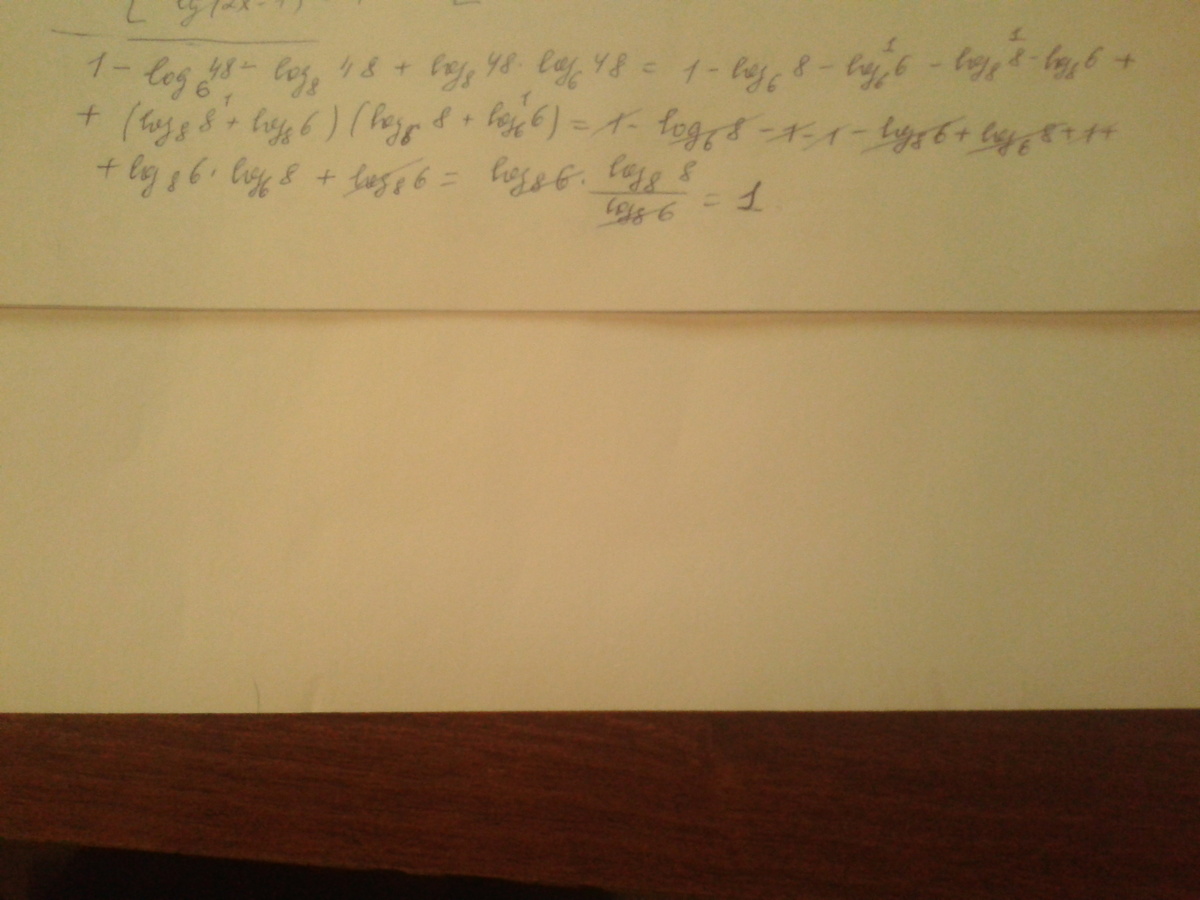 lg(2x-1)
1 - log₆ 48 - log₈ 48 + log₈ 48 · log₆ 48 = 1 - log₆ 8 - log₆ 6 ¹ - log₈ 8 ¹ - log₈ 6 +
+ (log₈ 8 ¹ + log₈ 6) (log₆ 8 + log₆ 6 ¹) = 1 - log₆ 8 - 1 - 1 - log₈ 6 + log₆ 8 + 1 +
+ log₈ 6 · log₆ 8 + log₈ 6 = log₈ 6 · log₈ 8 / log₈ 6 = 1